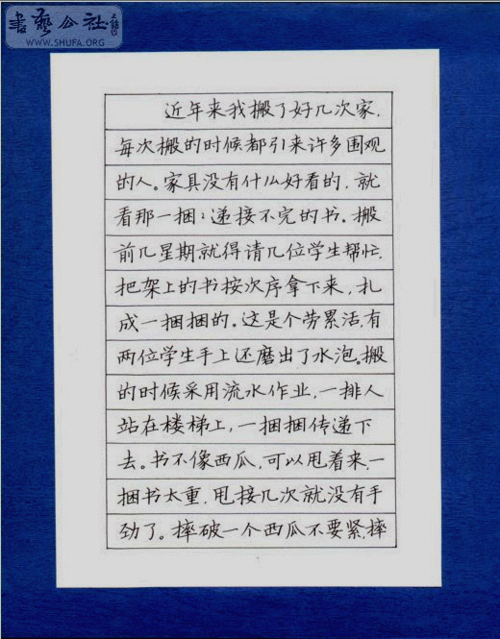 書藝公社
WWW.SHUFA.ORG
近年来我搬了好几次家,
每次搬的时候都引来许多围观
的人。家具没有什么好看的,就
看那一捆捆递接不完的书。搬
前几星期就得请几位学生帮忙,
把架上的书按次序拿下来,扎
成一捆捆的。这是个劳累活,有
两位学生手上还磨出了水泡。搬
的时候采用流水作业,一排人
站在楼梯上,一捆捆传递下
去。书不像西瓜,可以甩着来,一
捆书太重,甩接几次就没有手
劲了。摔破一个西瓜不要紧,摔